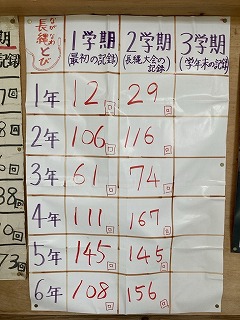 ながなわ
長縄とび
1学期
(最初の記録)
2学期
(長縄大会の
記録)
3学期
(学年末の記録)
1年 12回 29回
2年 106回 116回
3年 61回 74回
4年 111回 167回
5年 145回 145回
6年 108回 156回
記録)
7回
8回
0回
38回
0回
73回